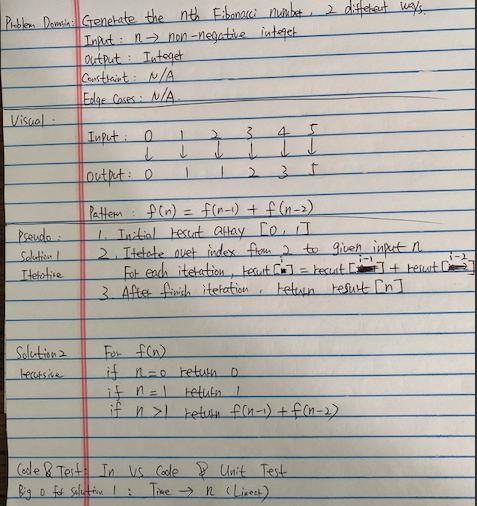 Problem Domain: Generate the nth Fibonacci number, 2 different ways.
Input: n → non-negative integer
Output: Integer
Constraint: N/A
Edge Cases: N/A.
Visual:
Input: 0 1 2 3 4 5
↓ ↓ ↓ ↓ ↓ ↓
Output: 0 1 1 2 3 5
Pattern: f(n) = f(n-1) + f(n-2)
Pseudo: 1. Initial result array [0, 1]
Solution 1 2. Iterate over index from 2 to given input n
Iterative For each iteration, result[i] = result[i-1] + result[i-2]
3. After finish iteration, return result[n]
Solution 2 For f(n)
recursive if n=0 return 0
if n=1 return 1
if n>1 return f(n-1) + f(n-2)
Code & Test: In VS Code & Unit Test
Big O for Solution 1: Time → n (Linear)